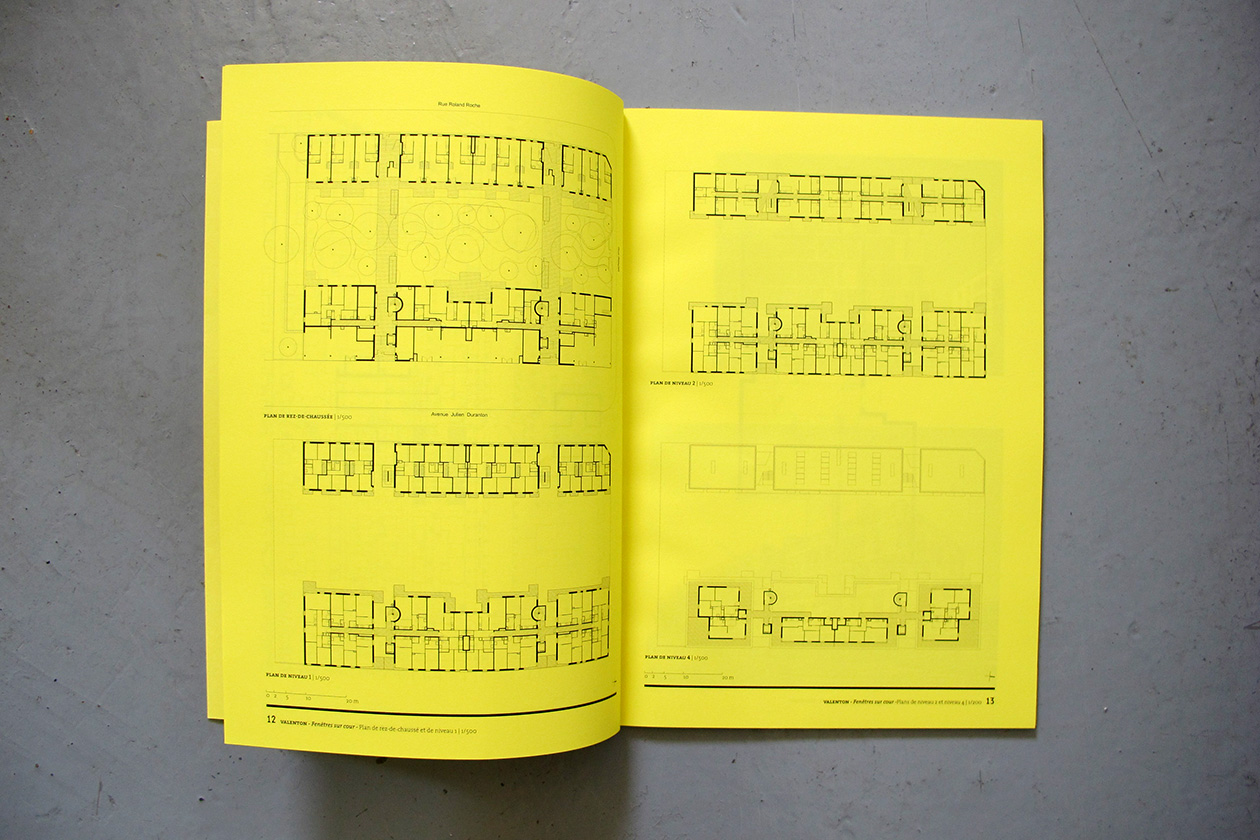 Rue Roland Roche
PLAN DE REZ-DE-CHAUSSÉE | 1/500
Avenue Julien Duranton
PLAN DE NIVEAU 1 | 1/500
0 2 5 10 20 m
12 VALENTON - Fenêtres sur cour - Plan de rez-de-chaussé et de niveau 1 | 1/500
PLAN DE NIVEAU 2 | 1/500
PLAN DE NIVEAU 4 | 1/500
0 2 5 10 20 m
VALENTON - Fenêtres sur cour - Plans de niveau 2 et niveau 4 | 1/200 13